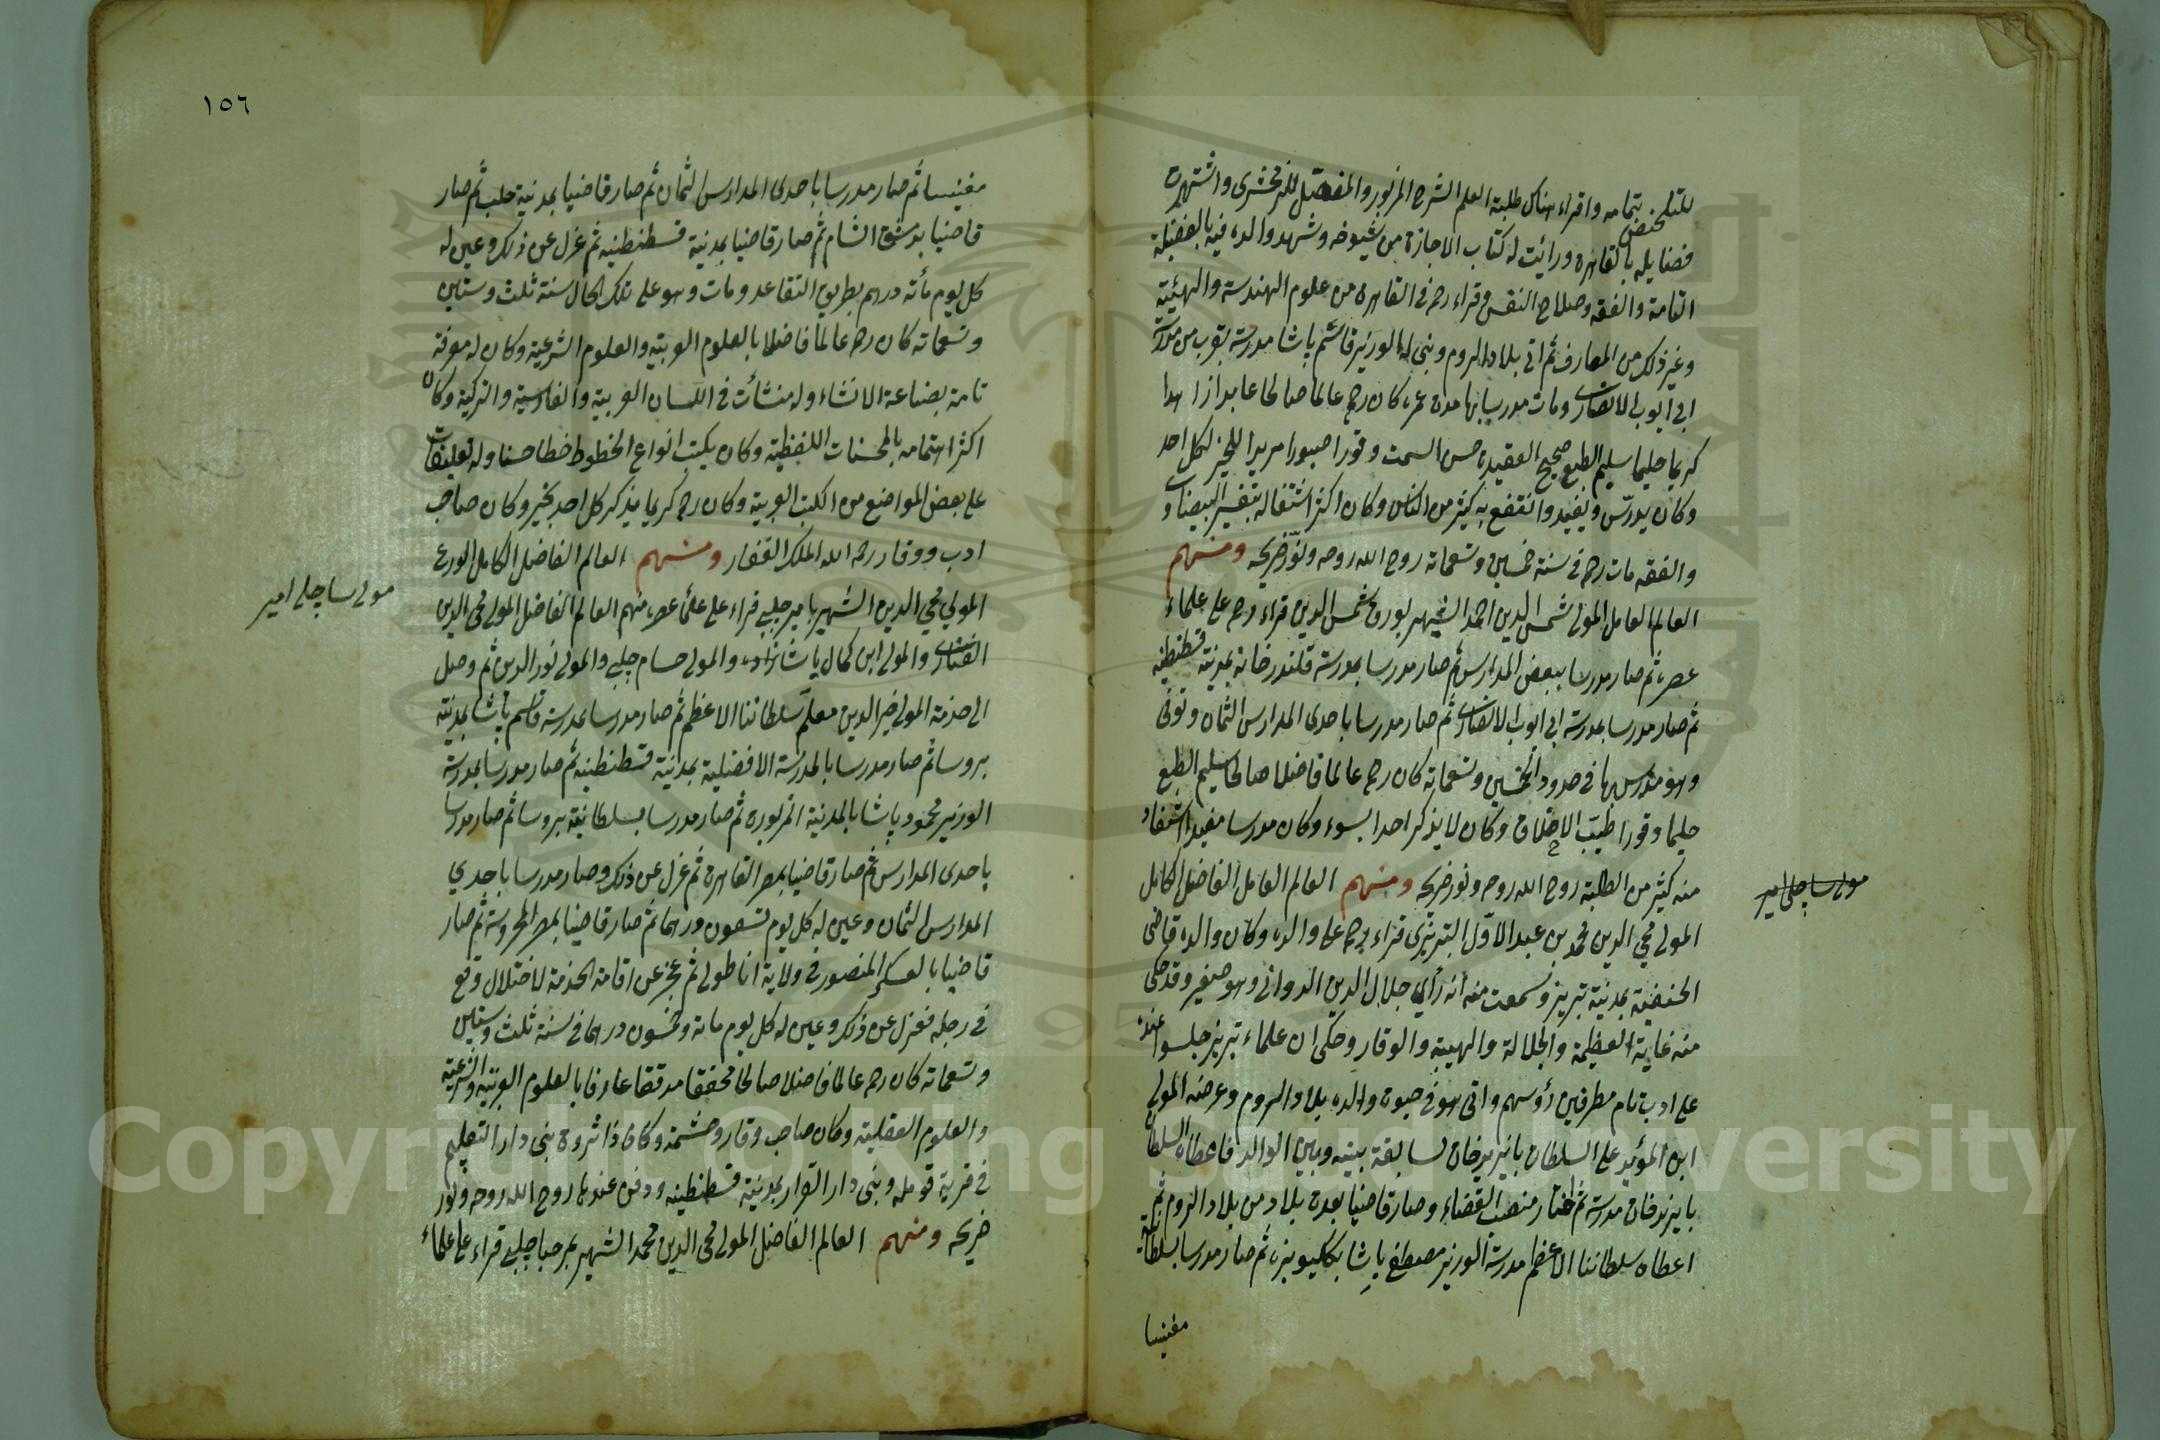 للتلخيص بتمامه واقراء هناك طلبة العلم الشرح المزبور والمفصّل للزمخشرى واشتهرت
فضايله بالقاهره ورأيت له كتاب الاجازة من شيوخه وشهدوا له فيه بالفضيلة
التامة والفقه وصلاح النفس وقراء رحمه فى القاهرة من علوم الهندسة والهيئية
وغير ذلك من المعارف ثم اتى بلاد الروم وبنى له الوزير قاسم باشا مدرسة بقرب من مدرسة
ابى ايوب الانصارى ومات مدرسا بها مدة عمره كان رحمه عالما صالحا عابدا زاهدا
كريما حليما سليم الطبع صحيح العقيدة حسن السمت وقورا صبورا مريدا للخير لكل احد
وكان يدرّس ويفيد وانتفع به كثير من الناس وكان اكثر اشتغاله بتفسير البيضاوى
والفقه مات رحمه فى سنة خمسين وتسعمائة روح الله روحه ونوّر ضريحه ومنهم
العالم العامل المولى شمس الدين احمد الشهير بورق شمس الدين قراء رحمه على علماء
عصره ثم صار مدرسا ببعض المدارس ثم صار مدرسا بمدرسة قلندرخانه بمدينة قسطنطنيه
ثم صار مدرسا بمدرسة ابى ايوب الانصارى ثم صار مدرسا باحدى المدارس الثمان وتوفى
وهو مدرس بها فى حدود الخمسين وتسعمائة كان رحمه عالما فاضلا صالحا سليم الطبع
حليما وقورا طيّب الاخلاق وكان لا يذكر احدا بسوء وكان مدرسا مفيدا استفاد
منه كثير من الطلبة روح الله روحه ونور ضريحه ومنهم العالم العامل الفاضل الكامل
المولى محي الدين محمد بن عبد الاوّل التبريزى قراء رحمه على والده وكان والده قاضى
الحنفية بمدينة تبريز وسمعت منه انه رأى جلال الدين الدوانى وهو صغير وقد حكى
منه غاية العظيمة والجلالة والهيبة والوقار وحكى ان علماء تبريز جلسوا عنده
على ادب تام مطرقين رؤسهم واتى هو فى حيوة والده بلاد الروم وعرضه المولى
ابن المؤيد على السلطان بايزيد خان لسابقة بينه وبين الوالد فاعطاه السلطان
بايزيد خان مدرسة ثم اختار منصب القضاء وصار قاضيا بعدة بلاد من بلاد الروم ثم
اعطاه سلطاننا الاعظم مدرسة الوزير مصطفى باشا بككبويزه ثم صار مدرسا بسلطانية
مغنيسا
مولى سا چلبى امير
١٥٦
مغنيسا ثم صار مدرسا باحدى المدارس الثمان ثم صار قاضيا بمدينة حلب ثم صار
قاضيا بدمشق الشام ثم صار قاضيا بمدينة قسطنطنيه ثم عزل عن ذلك وعين له
كل يوم مأته درهم بطريق التقاعد ومات وهو على تلك الحال سنة ثلث وستين
وتسعمائة كان رحمه عالما فاضلا بالعلوم العربيّه والعلوم الشرعية وكان له معرفة
تامة بصناعة الانشاء وله منشأت فى اللسان العربية والفارسية والتركية وكان
اكثر اهتمامه بالمحسنات اللفظية وكان يكتب انواع الخطوط خطا حسنا وله تعليقات
على بعض المواضع من الكتب العربية وكان رحمه كريما يذكر كل احد بخير وكان صاحب
ادب ووقار رحمه الله الملك الغفار ومنهم العالم الفاضل الكامل الورع
المولى محي الدين الشهير بامير چلبى قراء على علماء عصره منهم العالم الفاضل المولى محى الدين
الفنارى والمولى ابن كمال پاشازاده والمولى حسام چلبى والمولى نور الدين ثم وصل
الى خدمة المولى خير الدين معلّم سلطاننا الاعظم ثم صار مدرسا بمدرسة قاسم پاشا بمدينة
بروسا ثم صار مدرسا بالمدرسة الافضلية بمدينة قسطنطنيه ثم صار مدرسا بمدرسة
الوزير محمود پاشا بالمدينة المزبورة ثم صار مدرسا بسلطانية بروسا ثم صار مدرسا
باحدى المدارس ثم صار قاضيا بمصر القاهرة ثم عزل عن ذلك وصار مدرسا باحدي
المدارس الثمان وعين له كل يوم تسعون درهما ثم صار قاضيا بمصر المحروسة ثم صار
قاضيا بالعسكر المنصور فى ولاية اناطولى ثم عجز عن اقامة الخدمة لاختلال وقع
فى رجله فعزل عن ذلك وعين له كل يوم مائة وخمسون درهما فى سنة ثلث وستين
وتسعمائة كان رحمه عالما فاضلا صالحا محققا مدققا عارفا بالعلوم العربيّة والشرعيّة
والعلوم العقلية وكان صاحب وقار وحشمة وكان ذا ثروة بنى دار التعليم
فى قرية قومله وبنى دار القرار بمدينة قسطنطنيه ودفن عندها روح الله روحه ونور
ضريحه ومنهم العالم الفاضل المولى محى الدين محمد الشهير بمرحبا چلبى قراء على علماء
مولى سا چلبى امير
Copyright © King Saud University
1957